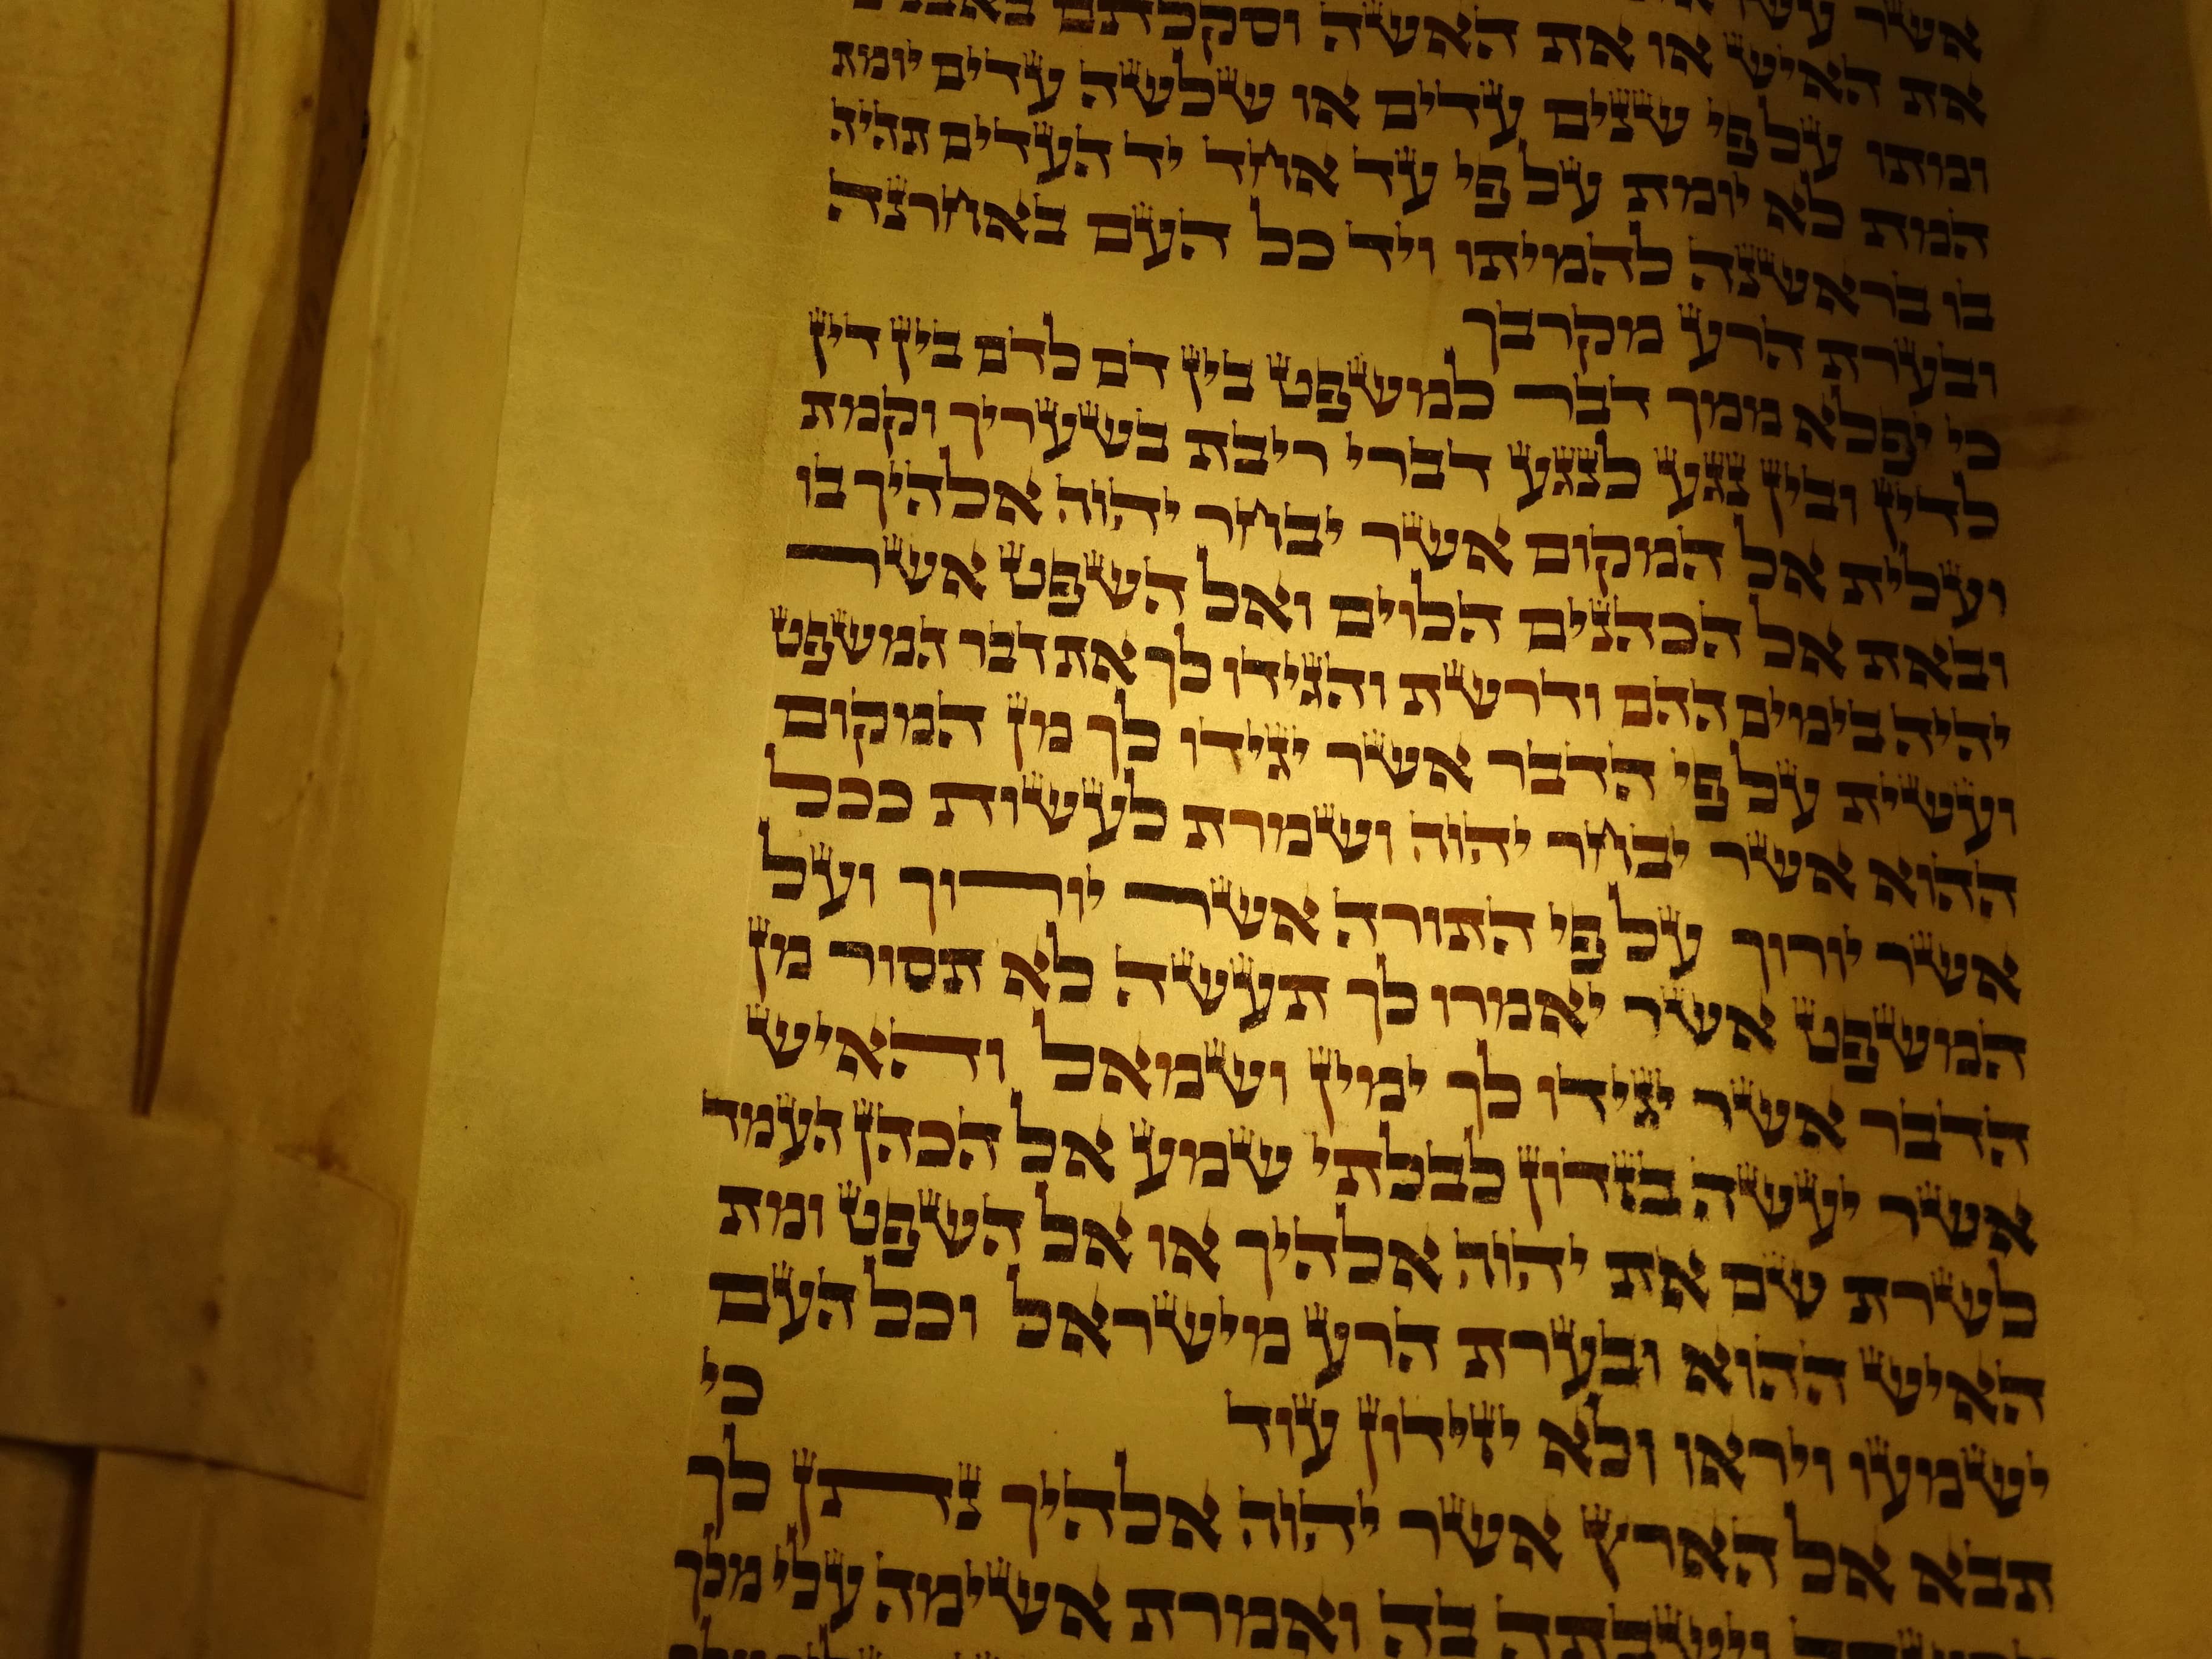 אשר
את האיש או את האשה וסקלתם באבנים
ומתו על פי שנים עדים או שלשה עדים יומת
המת לא יומת על פי עד אחד יד העדים תהיה
בו בראשנה להמיתו ויד כל העם באחרנה
ובערת הרע מקרבך
כי יפלא ממך דבר למשפט בין דם לדם בין דין
לדין ובין נגע לנגע דברי ריבת בשעריך וקמת
ועלית אל המקום אשר יבחר יהוה אלהיך בו
ובאת אל הכהנים הלוים ואל השפט אשר
יהיה בימים ההם ודרשת והגידו לך את דבר המשפט
ועשית על פי הדבר אשר יגידו לך מן המקום
ההוא אשר יבחר יהוה ושמרת לעשות ככל
אשר יורוך על פי התורה אשר יורוך ועל
המשפט אשר יאמרו לך תעשה לא תסור מן
הדבר אשר יגידו לך ימין ושמאל והאיש
אשר יעשה בזדון לבלתי שמע אל הכהן העמד
לשרת שם את יהוה אלהיך או אל השפט ומת
האיש ההוא ובערת הרע מישראל וכל העם
ישמעו ויראו ולא יזידון עוד כי
תבא אל הארץ אשר יהוה אלהיך נתן לך
וישבתה בה ואמרת אשימה עלי מלך